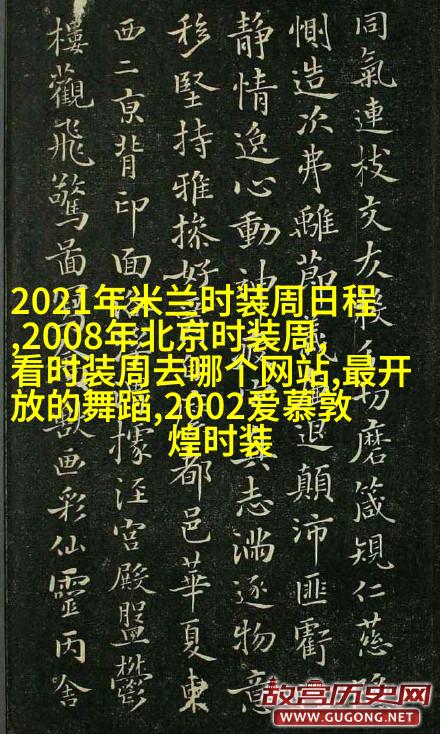 同氣連枝交友投切磨箴規仁慈隱
惻造次弗離節義退顛沛匪虧
靜情逸心動神疲真志滿逐物意
移堅持雅操好爵都邑華夏東
西二京背邙面洛據涇宮殿盤鬱
樓觀飛驚圖獸画彩仙靈丙舍
2021年米兰时装周日程
,2008年北京时装周,
看时装周去哪个网站,最开
放的舞蹈,2002爱慕敦
煌时装
故宫历史网
WWW.GUGONG.NET